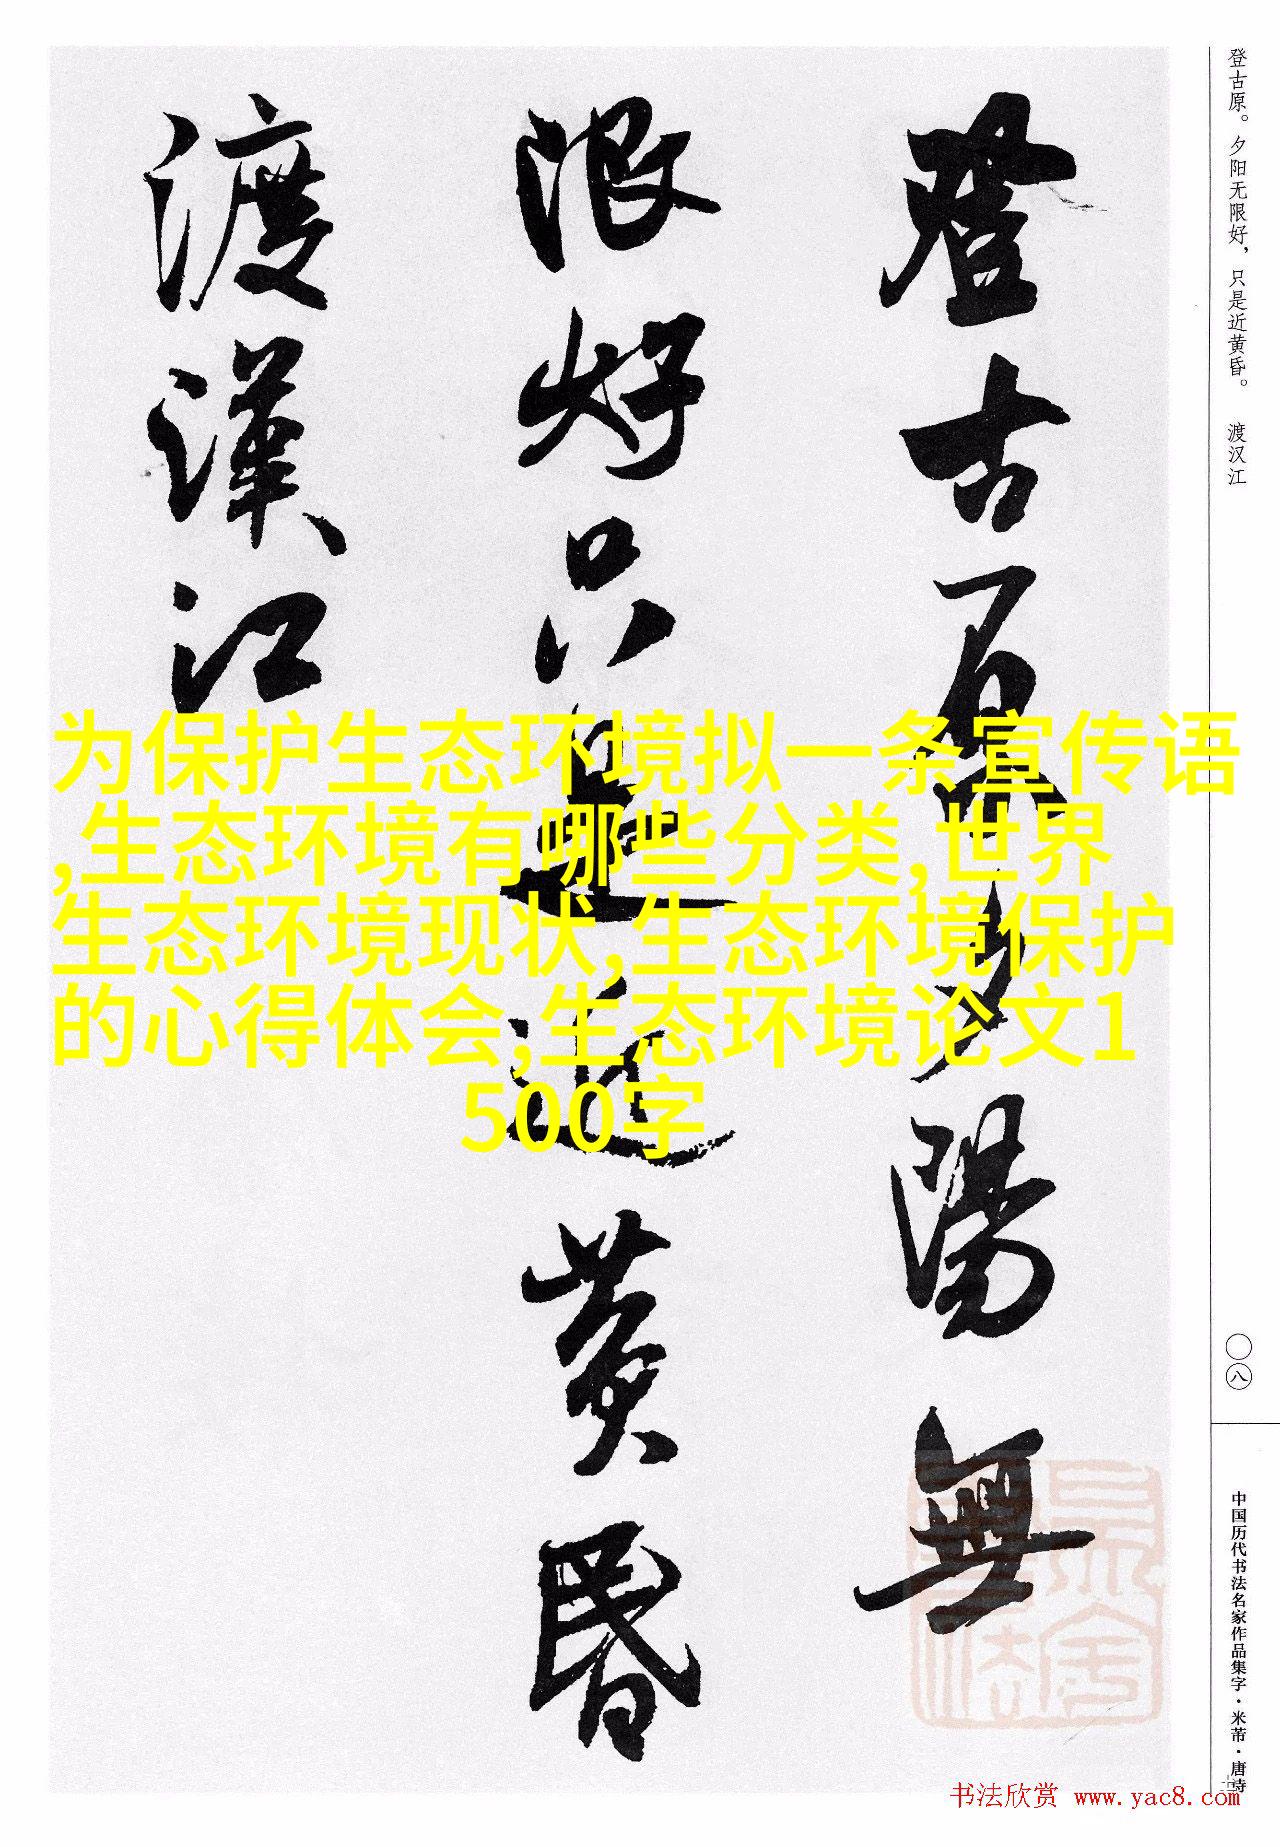 登古原夕陽無
限好只是近黄昏
渡漢江
登古原。夕阳无限好，只是近黄昏。 渡汉江
为保护生态环境拟一条宣传语
,生态环境有哪些分类,世界
生态环境现状,生态环境保护
的心得体会,生态环境论文1
500字
〇八
中国历代书法名家作品集字·米芾·唐诗
书法欣赏 www.yac8.com